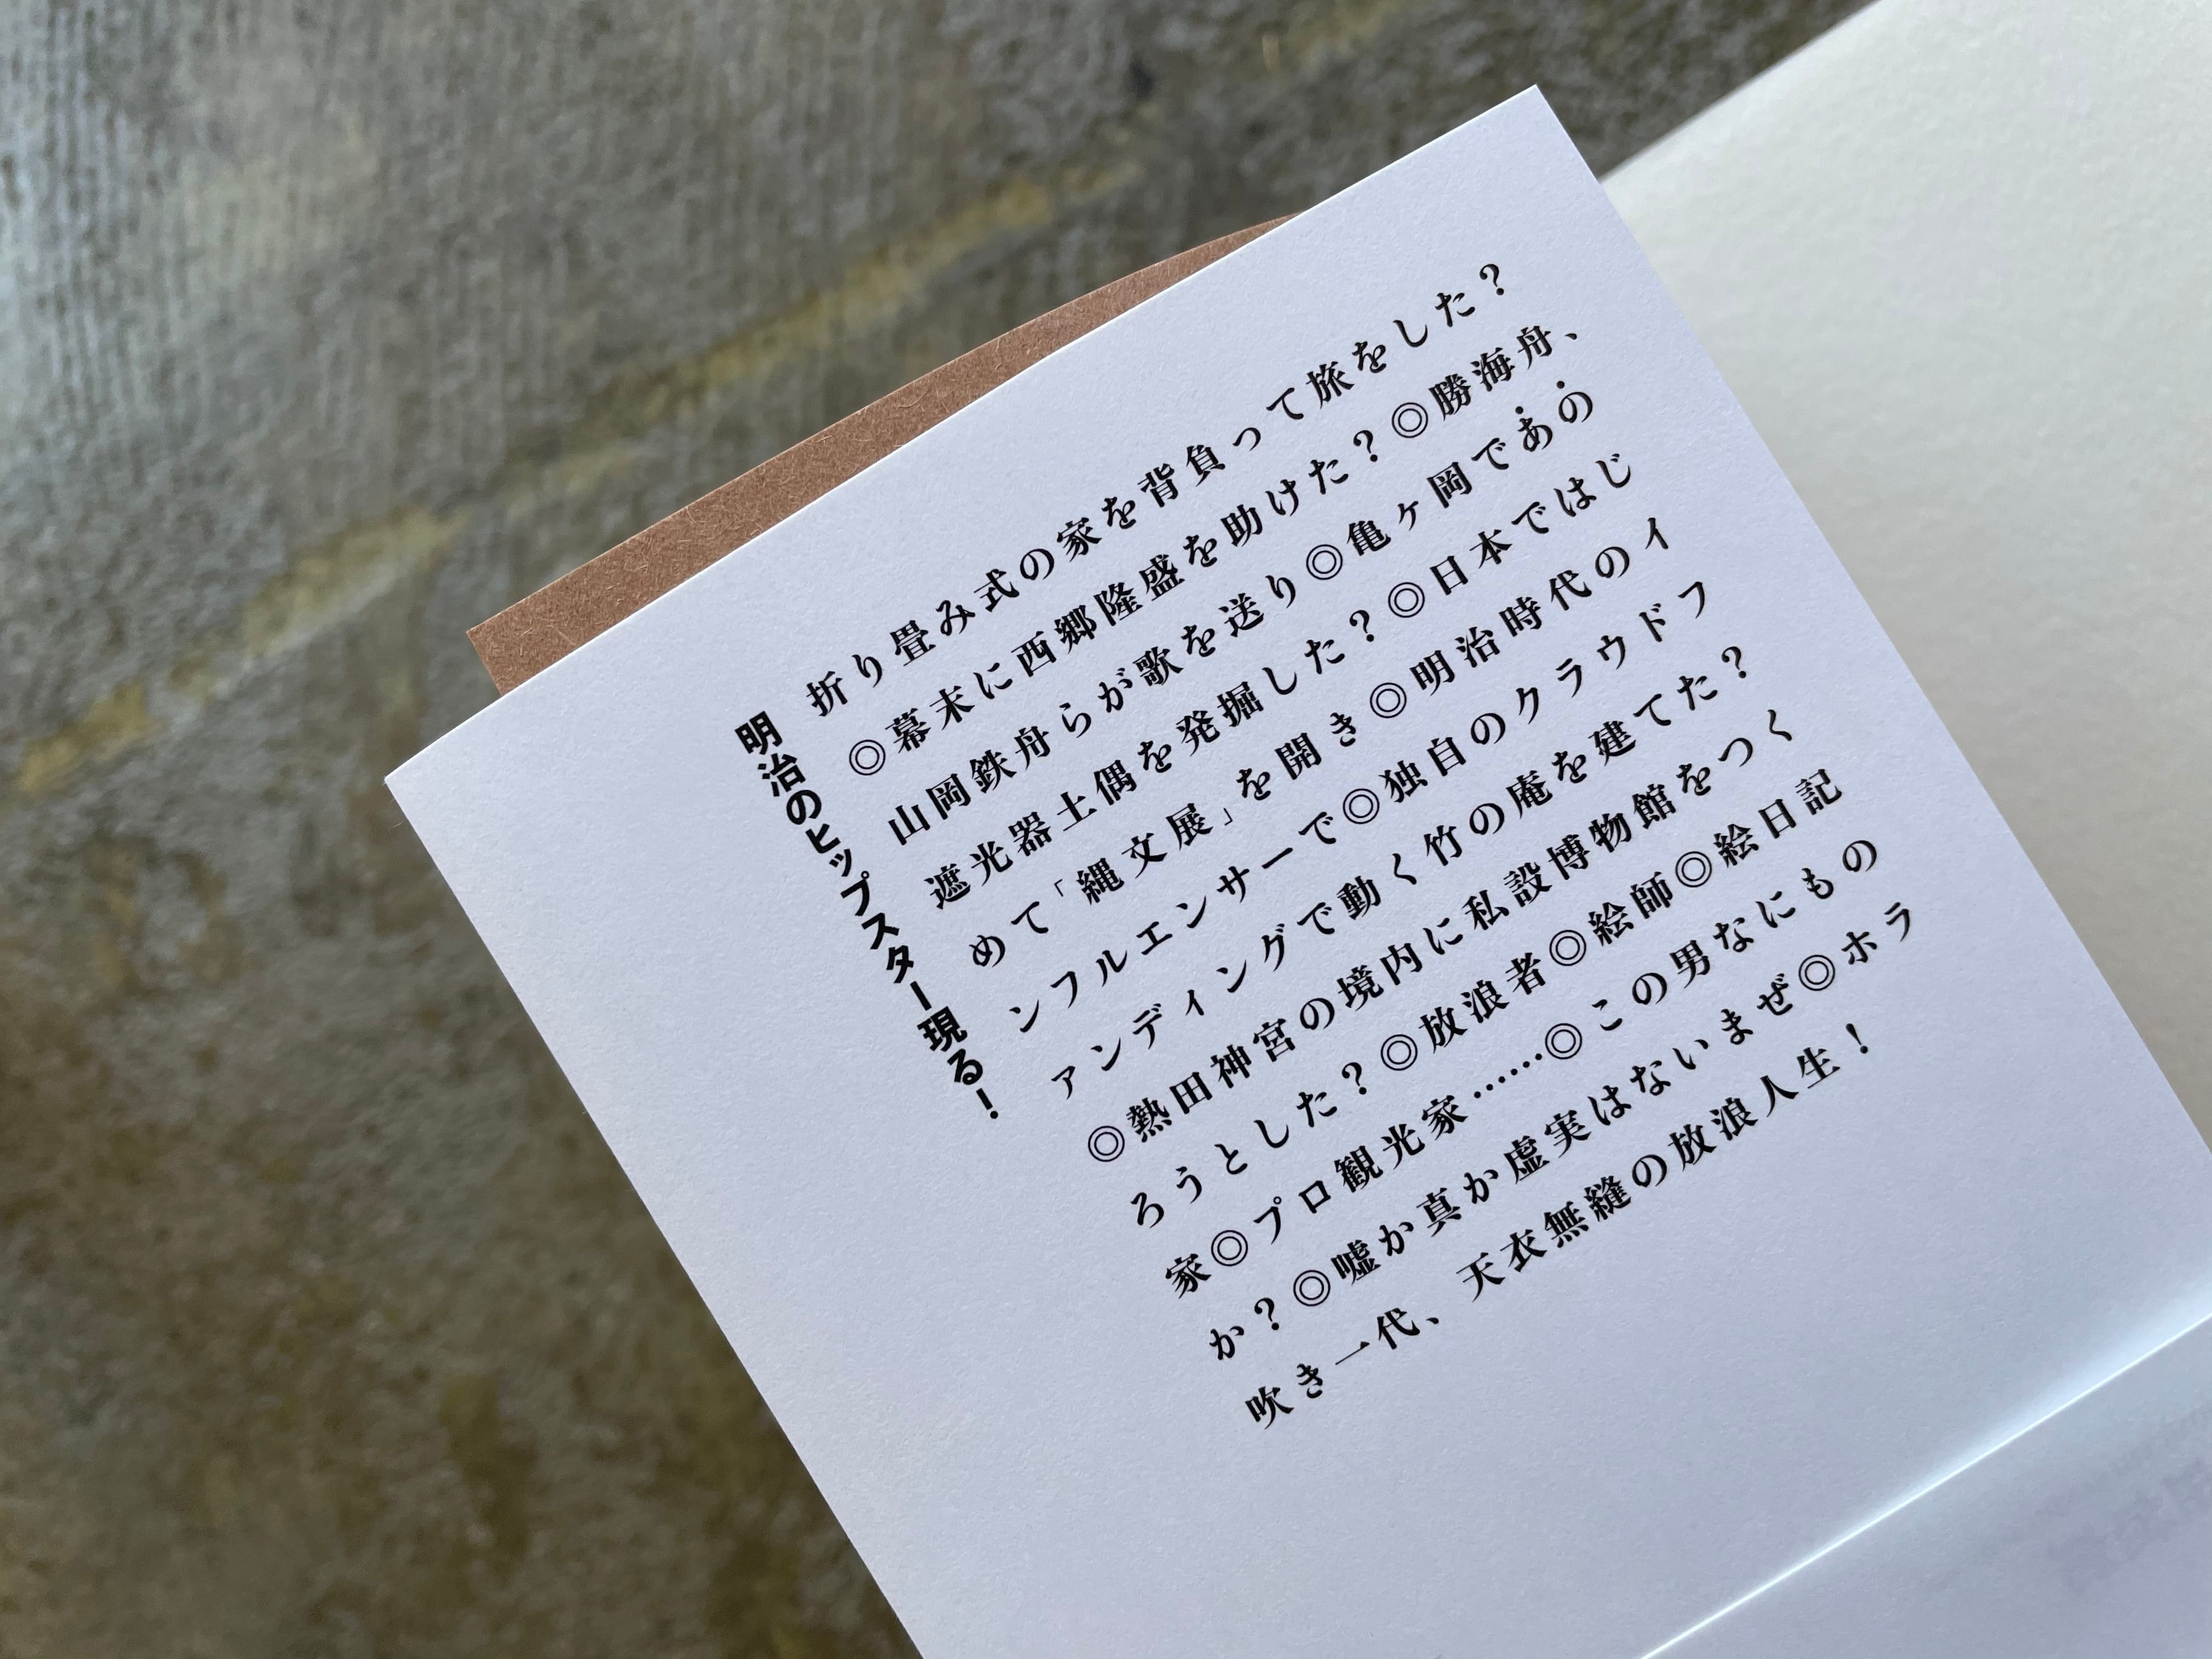 折り畳み式の家を背負って旅をした？
◎幕末に西郷隆盛を助けた？◎勝海舟、
山岡鉄舟らが歌を送り◎亀ヶ岡であの
遮光器土偶を発掘した？◎日本ではじ
めて「縄文展」を開き◎明治時代のイ
ンフルエンサーで◎独自のクラウドフ
ァンディングで動く竹の庵を建てた？
◎熱田神宮の境内に私設博物館をつく
ろうとした？◎放浪者◎絵師◎絵日記
家◎プロ観光家……◎この男なにもの
か？◎嘘か真か虚実はないまぜ◎ホラ
吹き一代、天衣無縫の放浪人生！
明治のヒップスター現る！